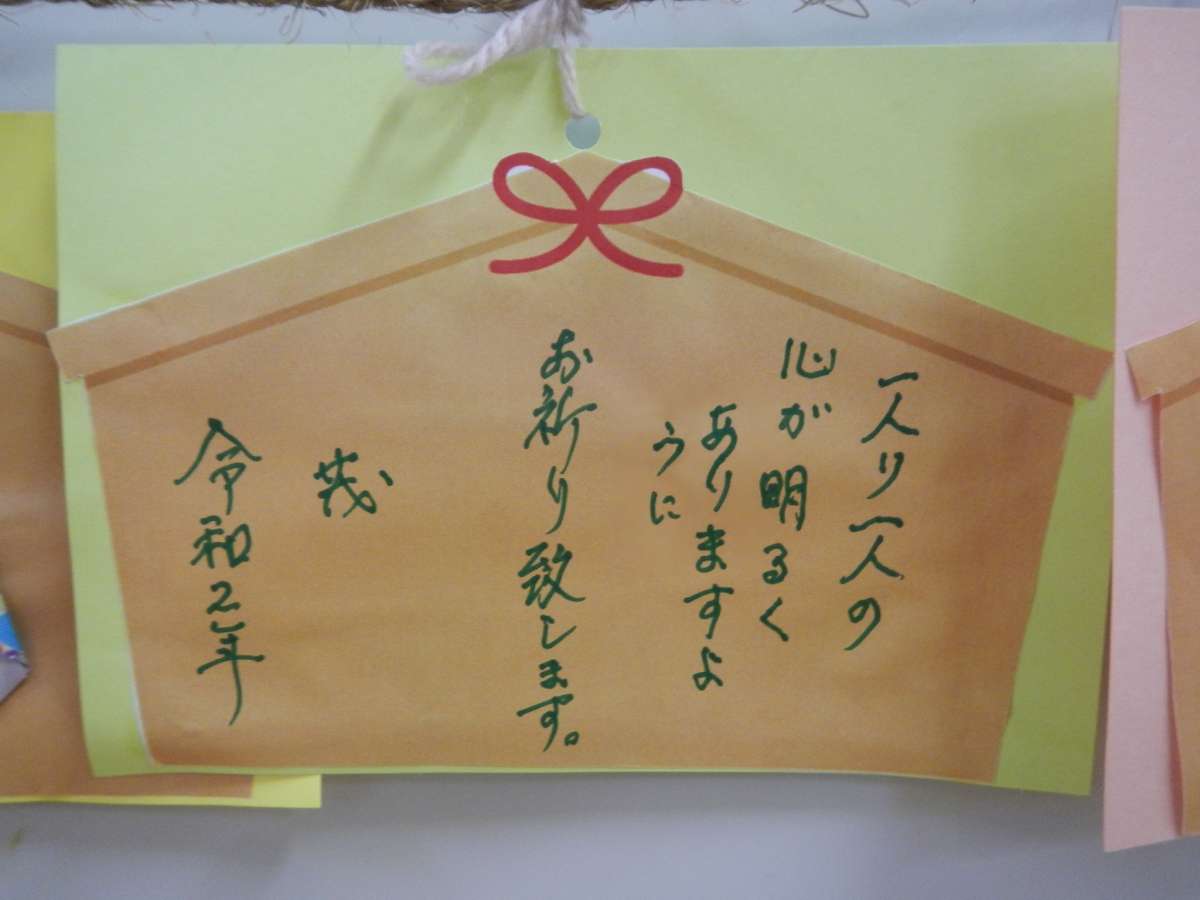 一人り一人の
心が明るく
ありますよ
うに
お祈り致します。
茂
令和2年